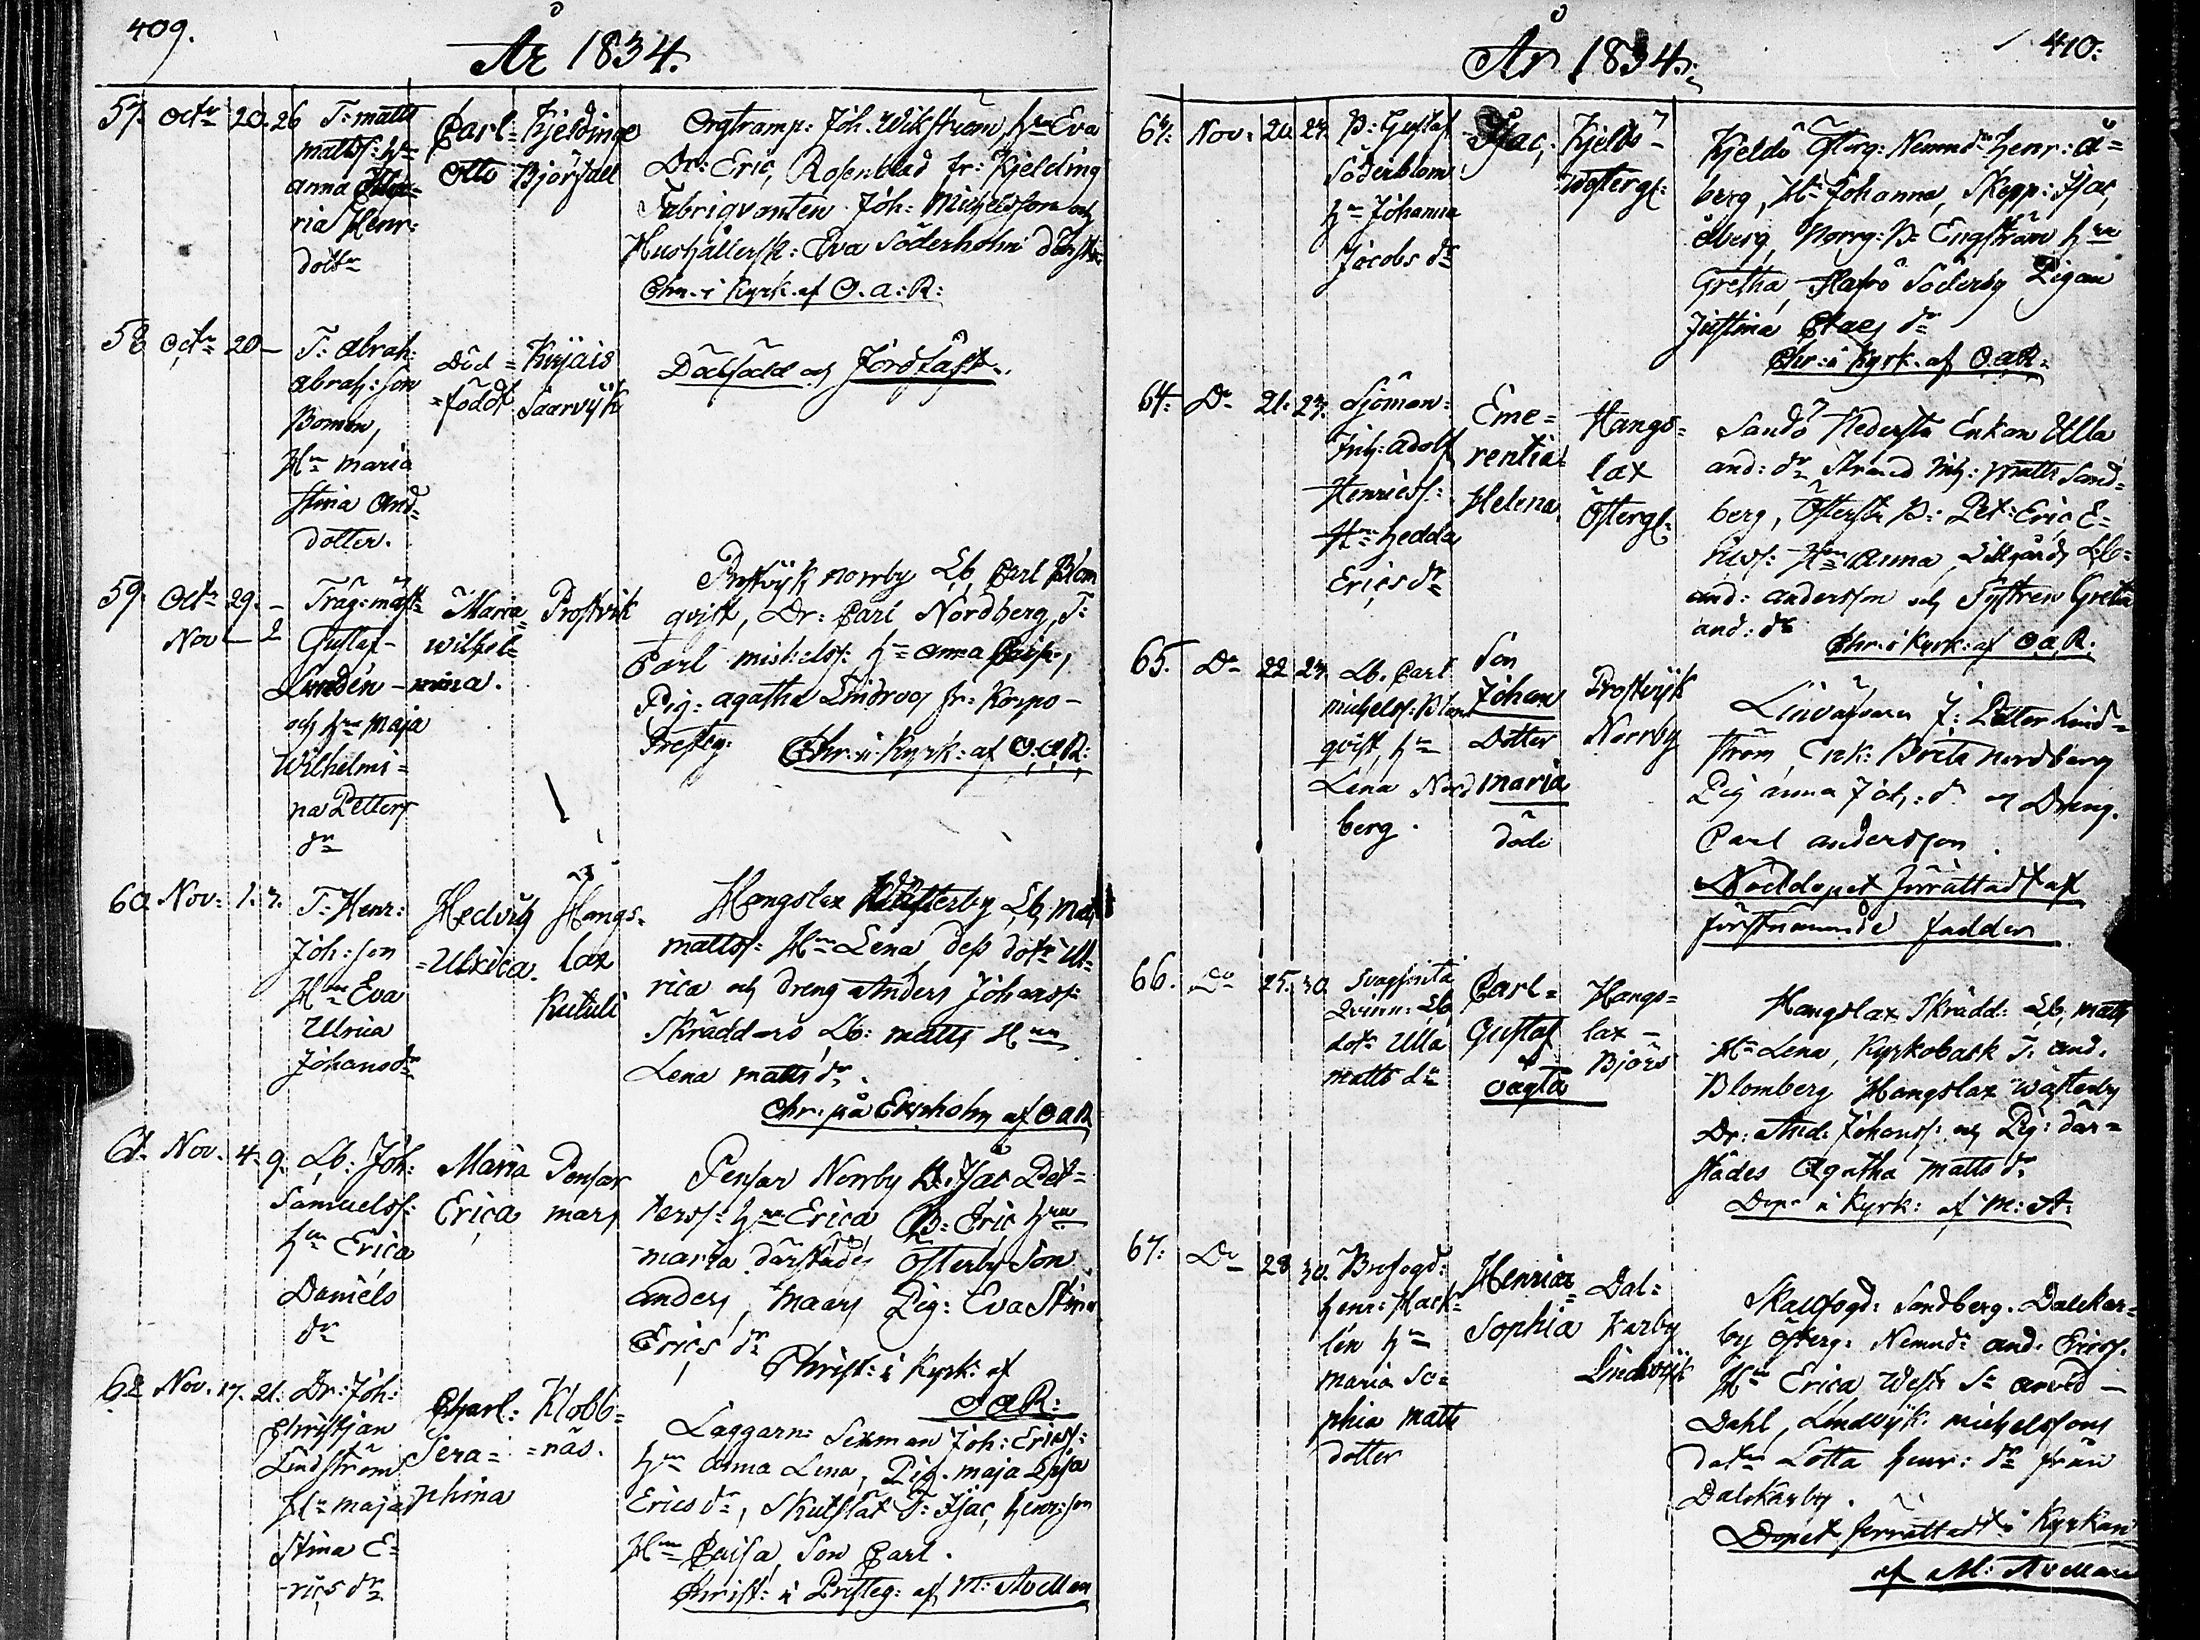 409.
År 1834.
57. Octr 20. 26 T: Matts
Matts: hu
Anna
ria Henr:
dottr
Carl=
Otto
Kjeldinge
Björsäll
Orgtramp: Joh: Wikström, hu Eva
Dr: Eric, Rosenblad fr: Kjelding
Fabriqvanten Joh: Michelsson och
Hushållersk: Eva Söderholm
Chr. i Kyrk. af O.a.R:
58 Octr 20 –
T: Abrah:
Abrah: son
Boman,
Hu Maria
Stina And=
dotter.
Död=
=född
Kirjais
Saarvijk
Dödfödd och Jordfäst.
59. Octr 29. –
Nov – 2
Träg: mäst:
Gustaf
Lindén
och hu Maja
Wilhelmi=
na Petters
dr
Maria
Wilhel=
mina.
Prostvik
Prostvijk Norrby Lb, Carl Blom
qvist, Dr: Carl Nordberg, T:
Carl Mickelss: hu Anna Caisa,
Pig: Agatha Lindroos fr: Korpo –
Presteg:
Chr. i Kyrk: af O.a.R:
60. Nov: 1. 3.
T: Henr:
Joh: son
Hu Eva
Ulrica
Johansdr
Hedvig
=Ulrica.
Hangs=
lax
Kutuli
Hangslax Wästerby Lb, Matts
Mattss: Hu Lena dess dotr Ul=
rica och dreng Anders Johanss:
Skrädd=rs Lb: Matts Hu
Lena Matts dr.
Chr. på Ersholm af O a R
61. Nov. 4. 9.
Lb: Joh:
Samuelss:
hu Erica
Daniels
dr
Maria
Erica
Pensar
mars
Pensar Norrby B. Isac Pet=
terss: hu Erica B: Eric hu
Maria därstädes Österby Son
Anders, Maars Pig: Eva Stina
Erics dr
Christ: i Kyrk: af
O a R:
62 Nov. 17. 21.
Dr: Joh:
Christian
Lindström
Hu Maja
Stina E=
rics dr
Charl:
Sera=
phina
Klobb=
=näs.
Laggarn: Sexman Joh: Ericss:
hu Anna Lena, Pig. Maja Lisa
Erics dr, Skutslät T: Isac, Henr: son
Hu Caisa, Son Carl.
Christ: i Presteg: af M: Avellan
År 1834.
410.
63. Nov: 20. 23.
B: Gustaf
Söderblom
hu Johanna
Jacobs dr
Isac,
Kjeldö –
Westergl:
Kjeldö Österg: Nemnd: Henr: Å=
berg, Hu Johanna, Skepp: Isac,
Åberg, Norrg: B: Engström hu
Gretha, Hafrö Söderby Pigan
Justina Claes dr
Chr: i Kyrk. af O.a R:
64: Do 21: 23.
Sjöman:
Inh: Adolf
Henricss:
Hu Hedda
Erics dr
Eme=
rentia=
Helena
Hangs=
lax
Österg:
Sandö Nedersta Enkan Ulla
And: dr Strand Inh: Matts Sand=
berg, Östersta B: Pet: Eric E=
ricss: Hu Anna, Lillgårds Lb=
And: Andersson och Systren Greta
And: dr
Chr: i Kyrk: af O a R:
65. Do 22 23.
Lb. Carl
Michelss: Blom
qvist, hu
Lena Nord
berg.
Son
Johan
Dotter
Maria
döde
Prostvijk
Norrby
Linväfvaren J: Petter Lind=
ström Enk: Brita Nordberg
Pig Anna Joh: dr och Dreng.
Carl Andersson.
Nöddopet förrättadt af
förstnämnde fadder
66. Do 25. 30.
Qvinn: Lb,
dotr Ulla
Matts dr
Carl=
Gustaf
oägta
Hangs=
lax –
Björs
Hangslax Skrädd: Lb, Matts
Hu Lena, Kyrkoback T: And.
Blomberg Hangslax Wästerby
Dr: And: Johanss: och Pig: där=
städes Agatha Matts dr
Dop: i Kyrk: af M: A:
67: Do 28 30.
Brofogd:
Henr: Hack=
lin hu
Maria So=
phia Matts
dotter
Henrica
Sophia
Dal=
karby
Lindvijk
Skallfogd: Sandberg. Dalckar=
by Österg: Nemnd: And. Ericss.
Hu Erica Westr Sn Arvid –
Dahl, Lindvijk Michelssons
dotr Lotta Henr: dr från
Dalckarby.
Dopet förrättadt i Kyrkan
af M: Avellan